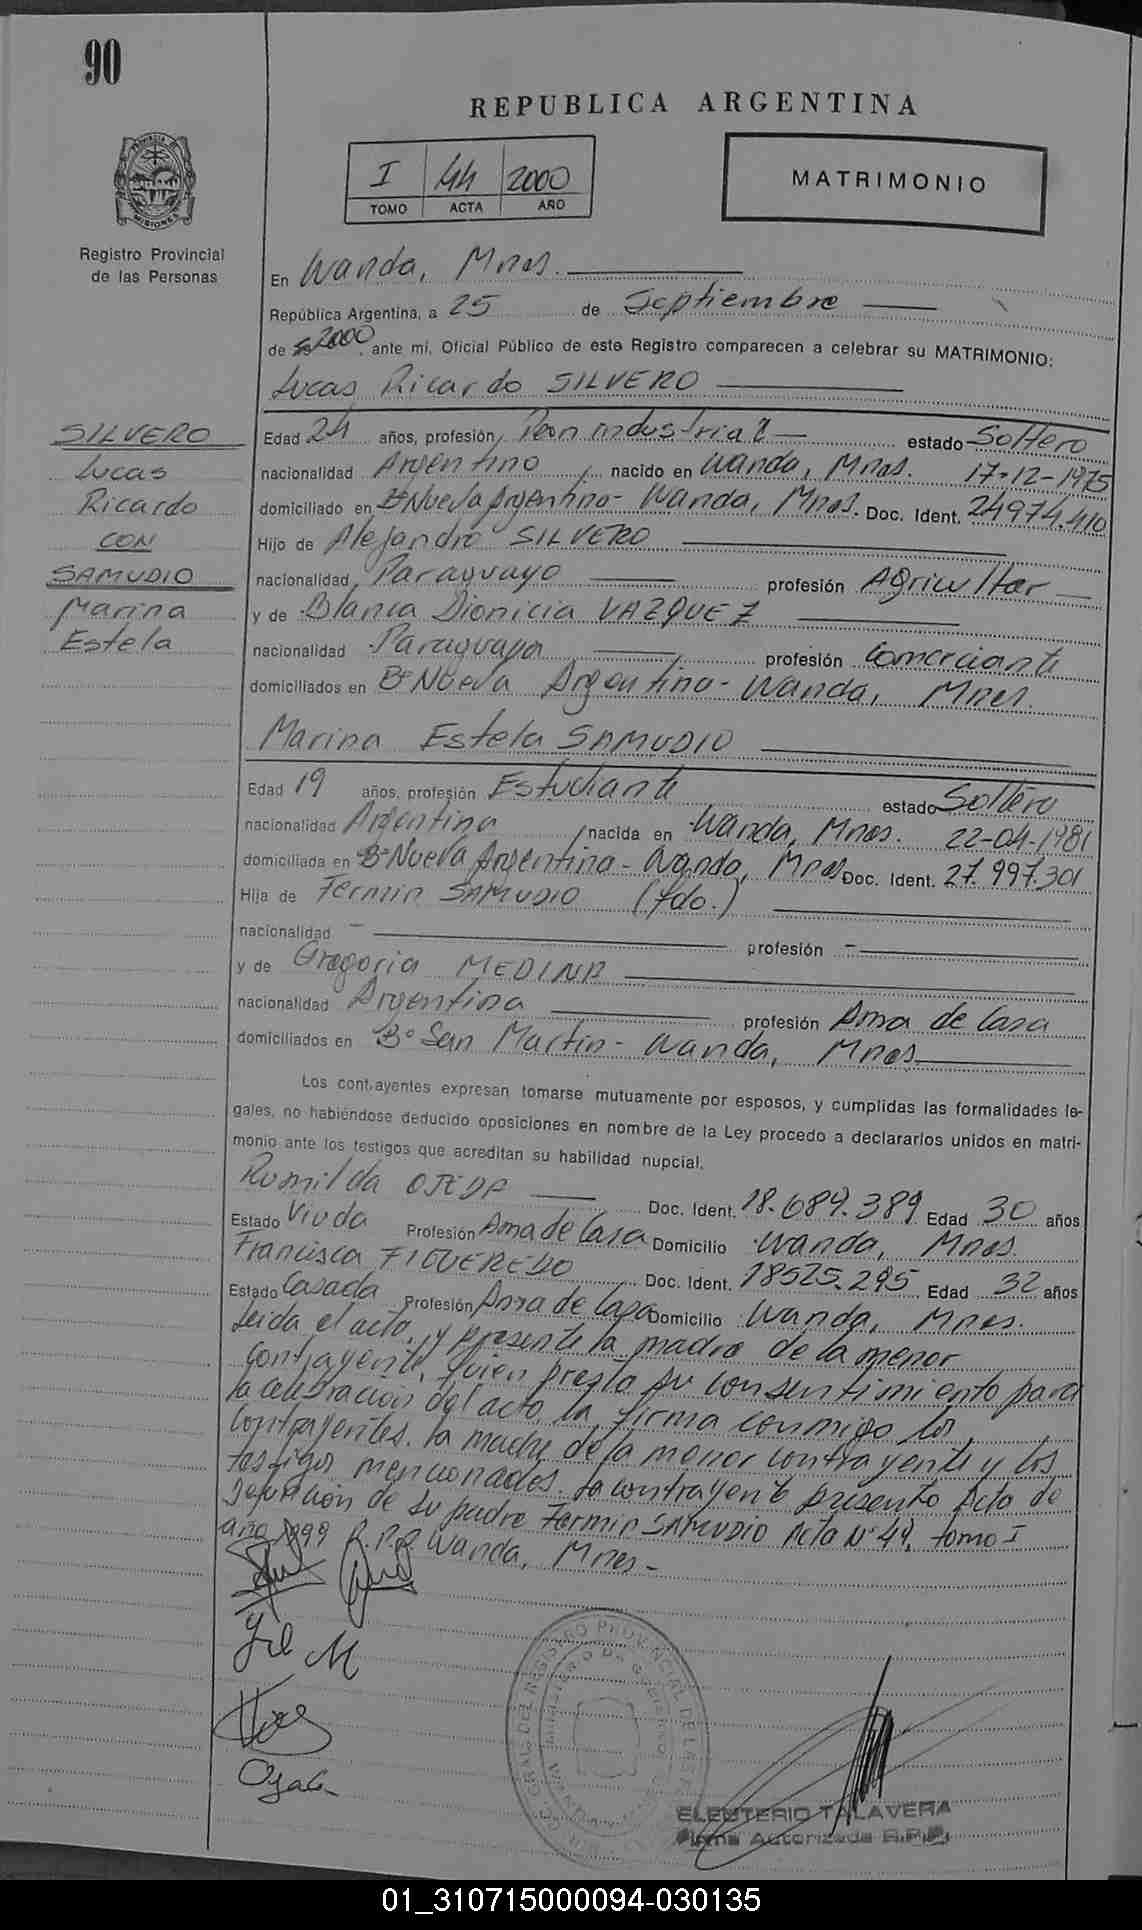 90
REPUBLICA ARGENTINA
I 44 2000
TOMO ACTA AÑO
MATRIMONIO
PROVINCIA DE MISIONES
Registro Provincial
de las Personas
En Wanda, Mnes.
República Argentina, a 25 de Septiembre
de 2000, ante mí, Oficial Público de este Registro comparecen a celebrar su MATRIMONIO:
Lucas Ricardo SILVERO
SILVERO
Lucas
Ricardo
CON
SAMUDIO
Marina
Estela
Edad 24 años, profesión Peon industrial estado Soltero
nacionalidad Argentino, nacido en Wanda, Mnes. 17-12-1975
domiciliado en Bº Nueva Argentina - Wanda, Mnes. Doc. Ident. 24974.410
Hijo de Alejandro SILVERO
nacionalidad Paraguayo profesión Agricultor
y de Blanca Dionicia VAZQUEZ
nacionalidad Paraguaya profesión Comerciante
domiciliados en Bº Nueva Argentina - Wanda, Mnes.
Marina Estela SAMUDIO
Edad 19 años, profesión Estudiante estado Soltera
nacionalidad Argentina, nacida en Wanda, Mnes. 22-04-1981
domiciliada en Bº Nueva Argentina - Wanda, Mnes Doc. Ident. 27.997.301
Hija de Fermin SAMUDIO (fdo.)
nacionalidad - profesión -
y de Gregoria MEDINA
nacionalidad Argentina profesión Ama de Casa
domiciliados en Bº San Martin - Wanda, Mnes
Los contrayentes expresan tomarse mutuamente por esposos, y cumplidas las formalidades le-
gales, no habiéndose deducido oposiciones en nombre de la Ley procedo a declararlos unidos en matri-
monio ante los testigos que acreditan su habilidad nupcial.
Romilda OJEDA Doc. Ident. 18.689.389 Edad 30 años
Estado Viuda Profesión Ama de Casa Domicilio Wanda, Mnes.
Francisca FIGUEREDO Doc. Ident. 18525.295 Edad 32 años
Estado Casada Profesión Ama de Casa Domicilio Wanda, Mnes.
Leida el acta, y presente la madre de la menor
contrayente, quien presta su consentimiento para
la celebracion del acto, la firma conmigo los
contrayentes, la madre de la menor contrayente y los
testigos mencionados. La contrayente presento Acta de
defuncion de su padre Fermin SAMUDIO Acta Nº 49, tomo I
año 1999 R.P.P. Wanda, Mnes-
ELEUTERIO TALAVERA
Firma Autorizada R.P.P.
01_310715000094-030135